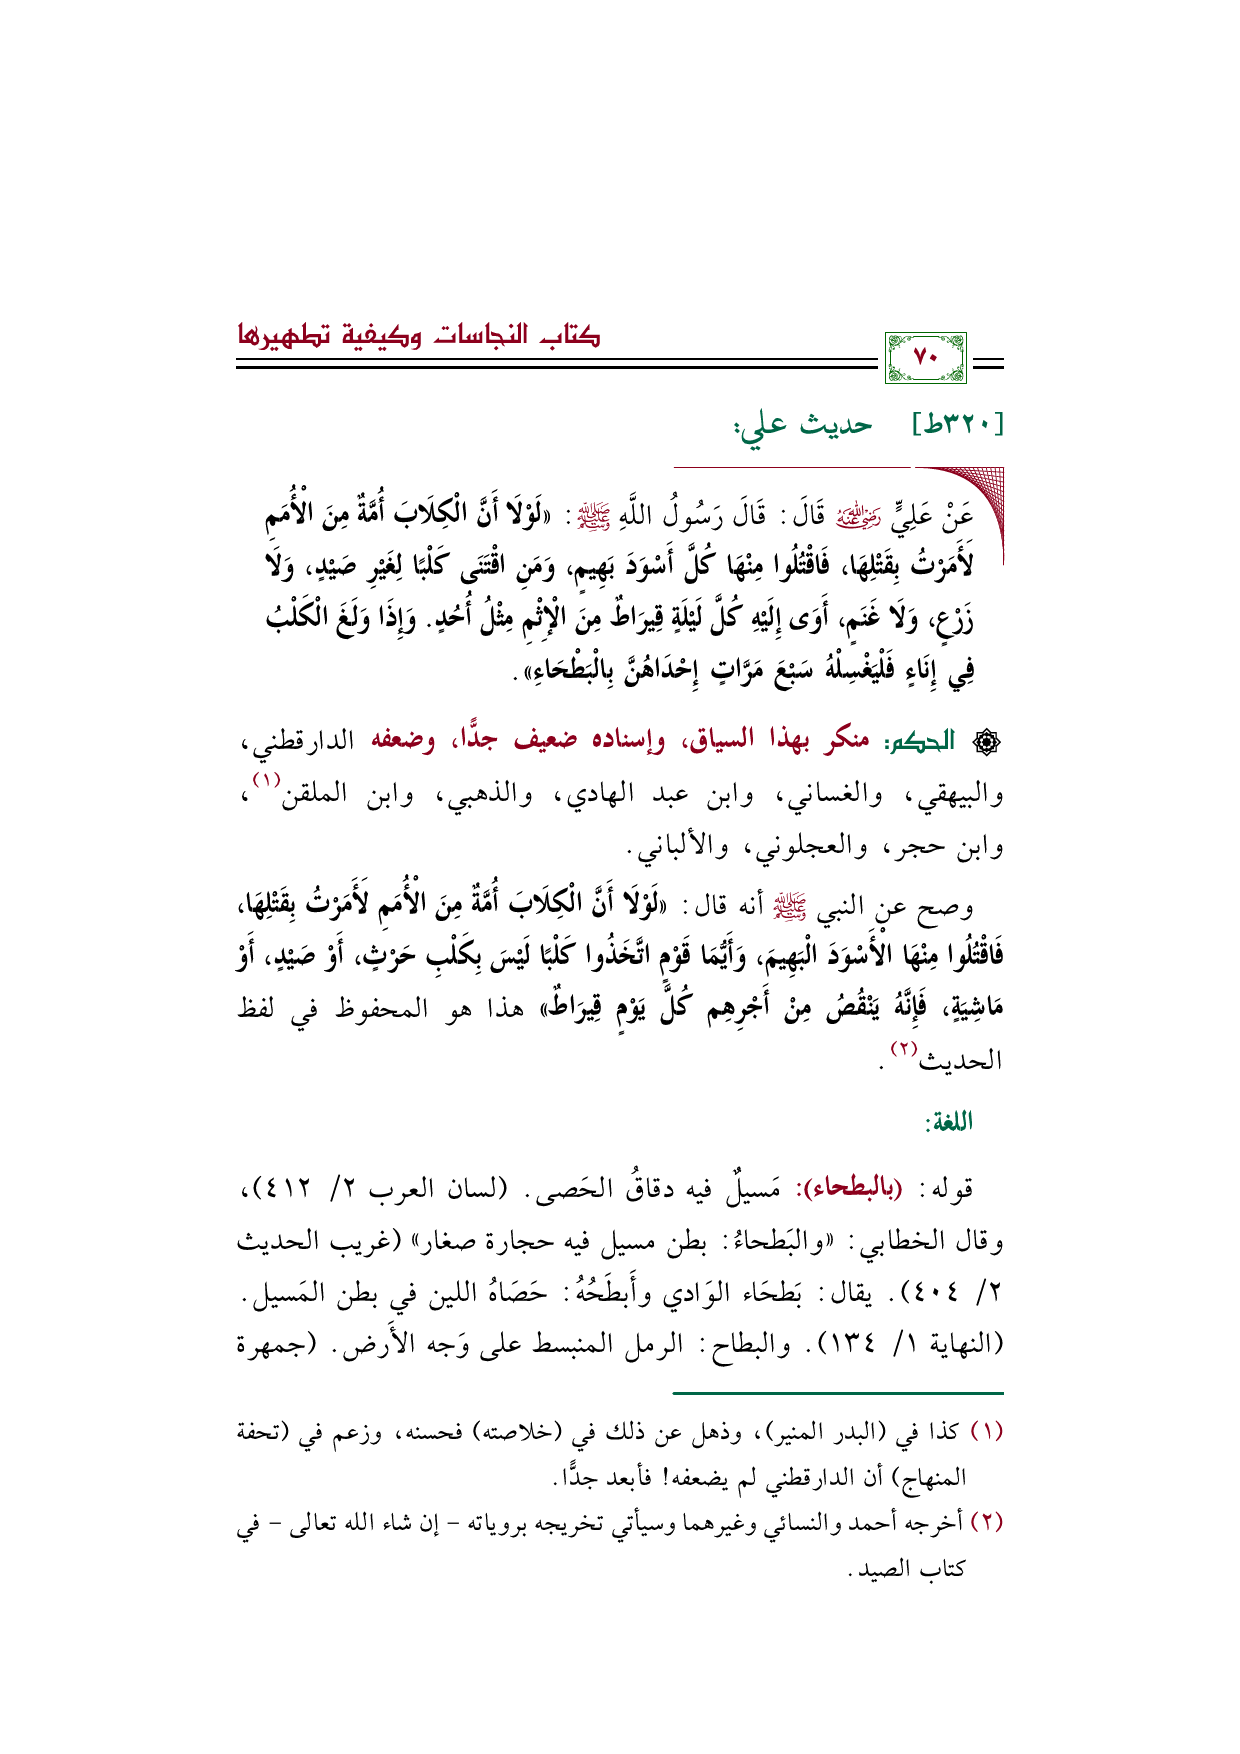 كتاب النجاسات وكيفية تطهيرها
٧٠
[٣٢٠ط] حديث علي:
عَنْ عَلِيٍّ رضي الله عنه قَالَ: قَالَ رَسُولُ اللَّهِ ﷺ: «لَوْلَا أَنَّ الْكِلَابَ أُمَّةٌ مِنَ الْأُمَمِ
لَأَمَرْتُ بِقَتْلِهَا، فَاقْتُلُوا مِنْهَا كُلَّ أَسْوَدَ بَهِيمٍ، وَمَنِ اقْتَنَى كَلْبًا لِغَيْرِ صَيْدٍ، وَلَا
زَرْعٍ، وَلَا غَنَمٍ، أَوَى إِلَيْهِ كُلَّ لَيْلَةٍ قِيرَاطٌ مِنَ الْإِثْمِ مِثْلُ أُحُدٍ. وَإِذَا وَلَغَ الْكَلْبُ
فِي إِنَاءٍ فَلْيَغْسِلْهُ سَبْعَ مَرَّاتٍ إِحْدَاهُنَّ بِالْبَطْحَاءِ».
الحكم: منكر بهذا السياق، وإسناده ضعيف جدًّا، وضعفه الدارقطني،
والبيهقي، والغساني، وابن عبد الهادي، والذهبي، وابن الملقن(١)،
وابن حجر، والعجلوني، والألباني.
وصح عن النبي ﷺ أنه قال: «لَوْلَا أَنَّ الْكِلَابَ أُمَّةٌ مِنَ الْأُمَمِ لَأَمَرْتُ بِقَتْلِهَا،
فَاقْتُلُوا مِنْهَا الْأَسْوَدَ الْبَهِيمَ، وَأَيُّمَا قَوْمٍ اتَّخَذُوا كَلْبًا لَيْسَ بِكَلْبِ حَرْثٍ، أَوْ صَيْدٍ، أَوْ
مَاشِيَةٍ، فَإِنَّهُ يَنْقُصُ مِنْ أَجْرِهِم كُلَّ يَوْمٍ قِيرَاطٌ» هذا هو المحفوظ في لفظ
الحديث(٢).
اللغة:
قوله: (بالبطحاء): مَسيلٌ فيه دقاقُ الحَصى. (لسان العرب ٢/ ٤١٢)،
وقال الخطابي: «والبَطحاءُ: بطن مسيل فيه حجارة صغار» (غريب الحديث
٢/ ٤٠٤). يقال: بَطحَاء الوَادي وأَبطَحُهُ: حَصَاهُ اللين في بطن المَسيل.
(النهاية ١/ ١٣٤). والبطاح: الرمل المنبسط على وَجه الأَرض. (جمهرة
(١) كذا في (البدر المنير)، وذهل عن ذلك في (خلاصته) فحسنه، وزعم في (تحفة
المنهاج) أن الدارقطني لم يضعفه! فأبعد جدًّا.
(٢) أخرجه أحمد والنسائي وغيرهما وسيأتي تخريجه بروياته – إن شاء الله تعالى – في
كتاب الصيد.